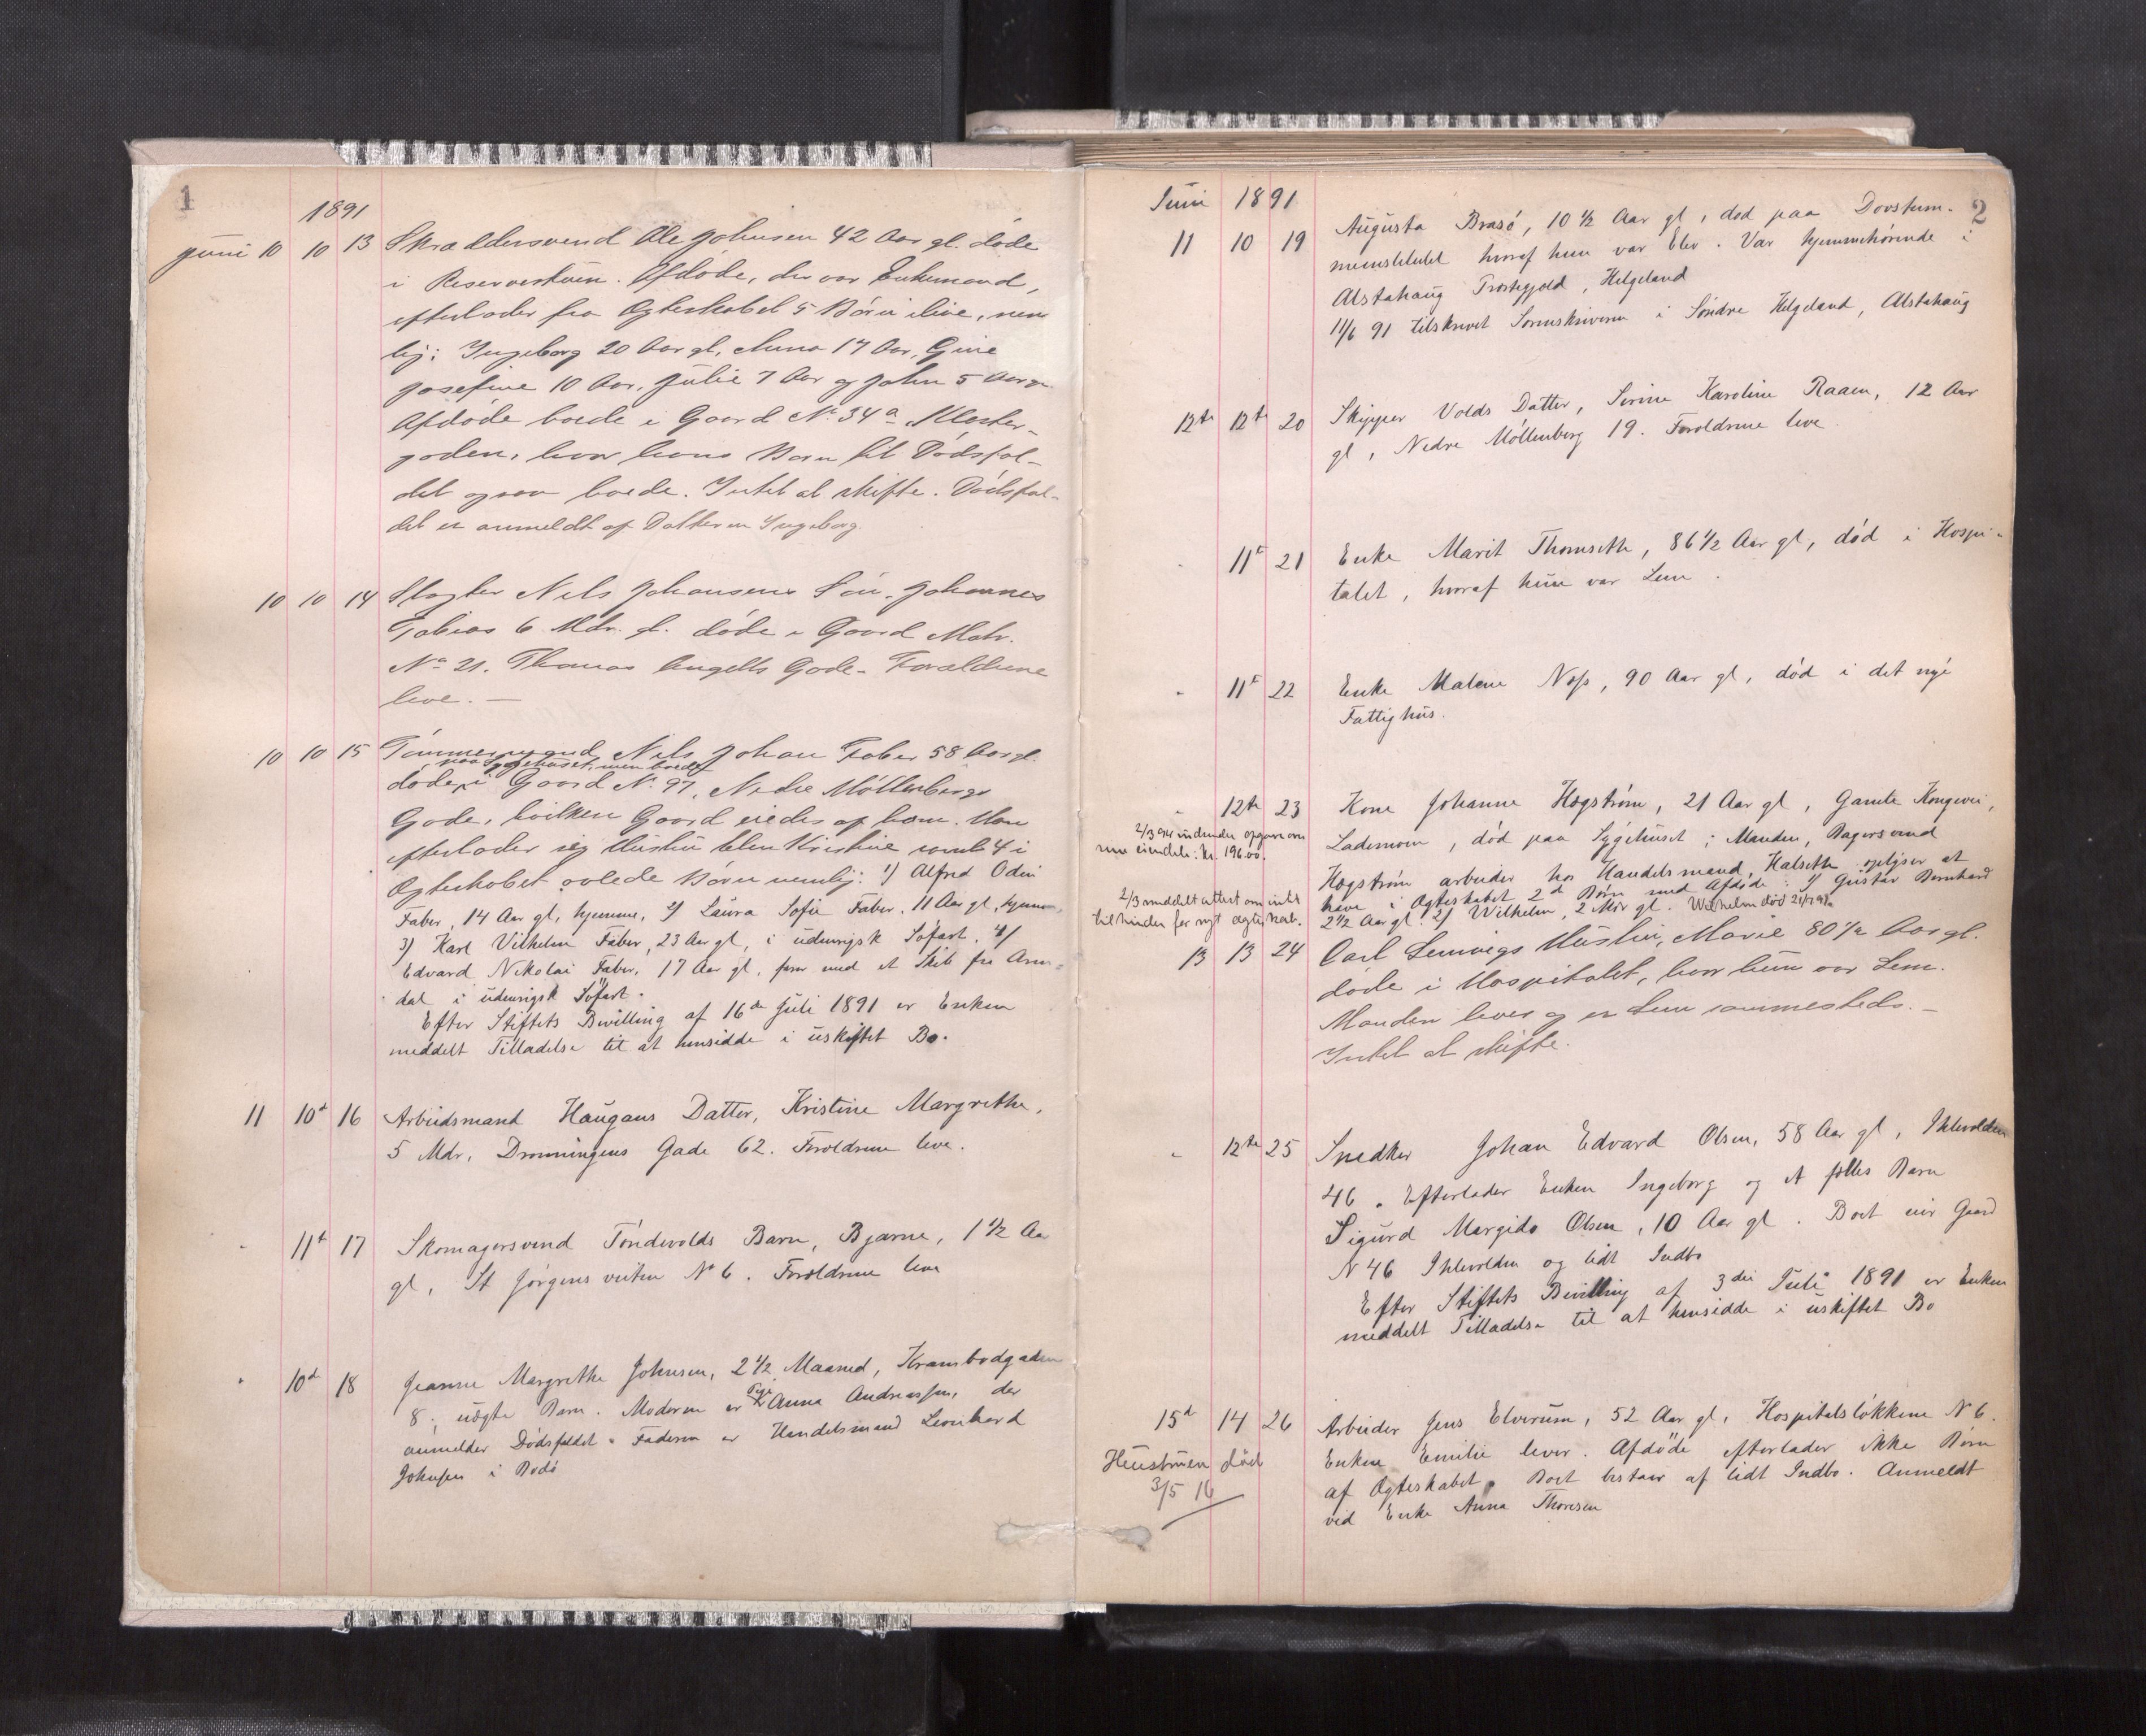 1
1891
Juni 10 10 13 Skræddersvend Ole Johnsen 42 Aar gl. døde
i Reservestuen. Afdøde, der var Enkemand,
efterlader fra Ægteskabet 5 Børn ilive, nem
lig: Ingeborg 20 Aar gl, Anna 17 Aar, Gine
Josefine 10 Aar, Julie 7 Aar og John 5 Aar gl.
Afdøde boede i Gaard No 34a Kloster-
gaden, hvor hans Børn til Dødsfal-
det ogsaa boede. Intet at skifte. Dødsfal-
det er anmeldt af Datteren Ingeborg.
10 10 14 Slagter Nils Johansens Søn, Johannes
Tobias 6 Mdr. gl. døde i Gaard Matr.
No 21. Thomas Angells Gade. Forældrene
leve. —
10 10 15 Tømmermand Nils Johan Faber 58 Aar gl.
paa Sygehuset, men boede
døde i Gaard No 97, Nedre Møllenbergs
Gade, hvilken Gaard eiedes af ham. Han
efterlader sig Hustru Elen Kristine samt 4 i
Ægteskabet avlede Børn nemlig: 1) Alfred Odin
Faber, 14 Aar gl, hjemme, 2) Laura Sofie Faber, 11 Aar gl, hjemme,
3) Karl Vilhelm Faber, 23 Aar gl, i udenrigsk Søfart, 4)
Edvard Nikolai Faber, 17 Aar gl, farer med et Skib fra Aren=
dal i udenrigsk Søfart.
Efter Stiftets Bevilling af 16de Juli 1891 er Enken
meddelt Tilladelse til at hensidde i uskiftet Bo.
11 10d 16 Arbeidsmand Haugans Datter, Kristine Margrethe,
5 Mdr, Dronningens Gade 62. Forældrene leve.
" 11t 17 Skomagersvend Tøndevolds Barn, Bjarne, 1 1/2 Aa
gl, St Jørgens veiten No 6. Forældrene leve
" 10d 18 Jeanne Margrethe Johnsen, 2 1/2 Maaned, Krambodgaden
8. uægte Barn. Moderen er Pige Anna Andreassen, der
anmelder Dødsfaldet. Faderen er Handelsmand Leonhard
Johnsen i Bodø
2
Juni 1891
11 10 19 Augusta Brasø, 10 1/2 Aar gl, død paa Døvstum-
meinstitutet hvoraf hun var Elev. Var hjemmehørende i
Alstahaug Præstegjeld, Helgeland
11/6 91 tilskrevet Sorenskriveren i Søndre Helgeland, Alstahaug
12te 12te 20 Skipper Volds Datter, Serine Karoline Raaen, 12 Aar
gl, Nedre Møllenberg 19. Forældrene leve
" 11t 21 Enke Marit Thomseth, 86 1/2 Aar gl, død i Hospi-
talet, hvoraf hun var Lem.
" 11t 22 Enke Malene Næss, 90 Aar gl, død i det nye
Fattighus.
" 12te 23 Kone Johanne Hægstrøm, 21 Aar gl, Gamle Kongevei,
Lademoen, død paa Sygehuset; Manden, Bagersvend
Hægstrøm arbeider hos Handelsmand Halseth oplyser at
have i Ægteskabet 2d Børn med Afdøde: 1) Gustav Bernhard
2 1/2 Aar gl. 2) Wilhelm, 2 Mdr gl. Wilhelm død
kr. 196.00.
2/3 meddelt attest om intet
til hinder for nyt ægteskab.
13 13 24 Carl Lemvigs Hustru, Marie 80 1/2 Aar gl.
døde i Hospitalet, hvor hun var Lem.
Manden lever og er Lem sammesteds. —
Intet at skifte.
" 12te 25 Snedker Johan Edvard Olsen, 58 Aar gl, Ihlevolden
46. Efterlader Enken Ingeborg og et fælles Barn
Sigurd Margido Olsen, 10 Aar gl. Boet eier Gaard
N 46 Ihlevolden og lidt Indbo
Efter Stiftets Bevilling af 3die Juli 1891 er Enken
meddelt Tilladelse til at hensidde i uskiftet Bo
15d 14 26 Arbeider Jens Elverum, 52 Aar gl, Hospitalsløkken N 6.
Enken Emilie lever. Afdøde efterlader ikke Børn
af Ægteskabet. Boet bestaar af lidt Indbo. Anmeldt
ved Enke Anna Thoresen
Heustruen død
3/5 16